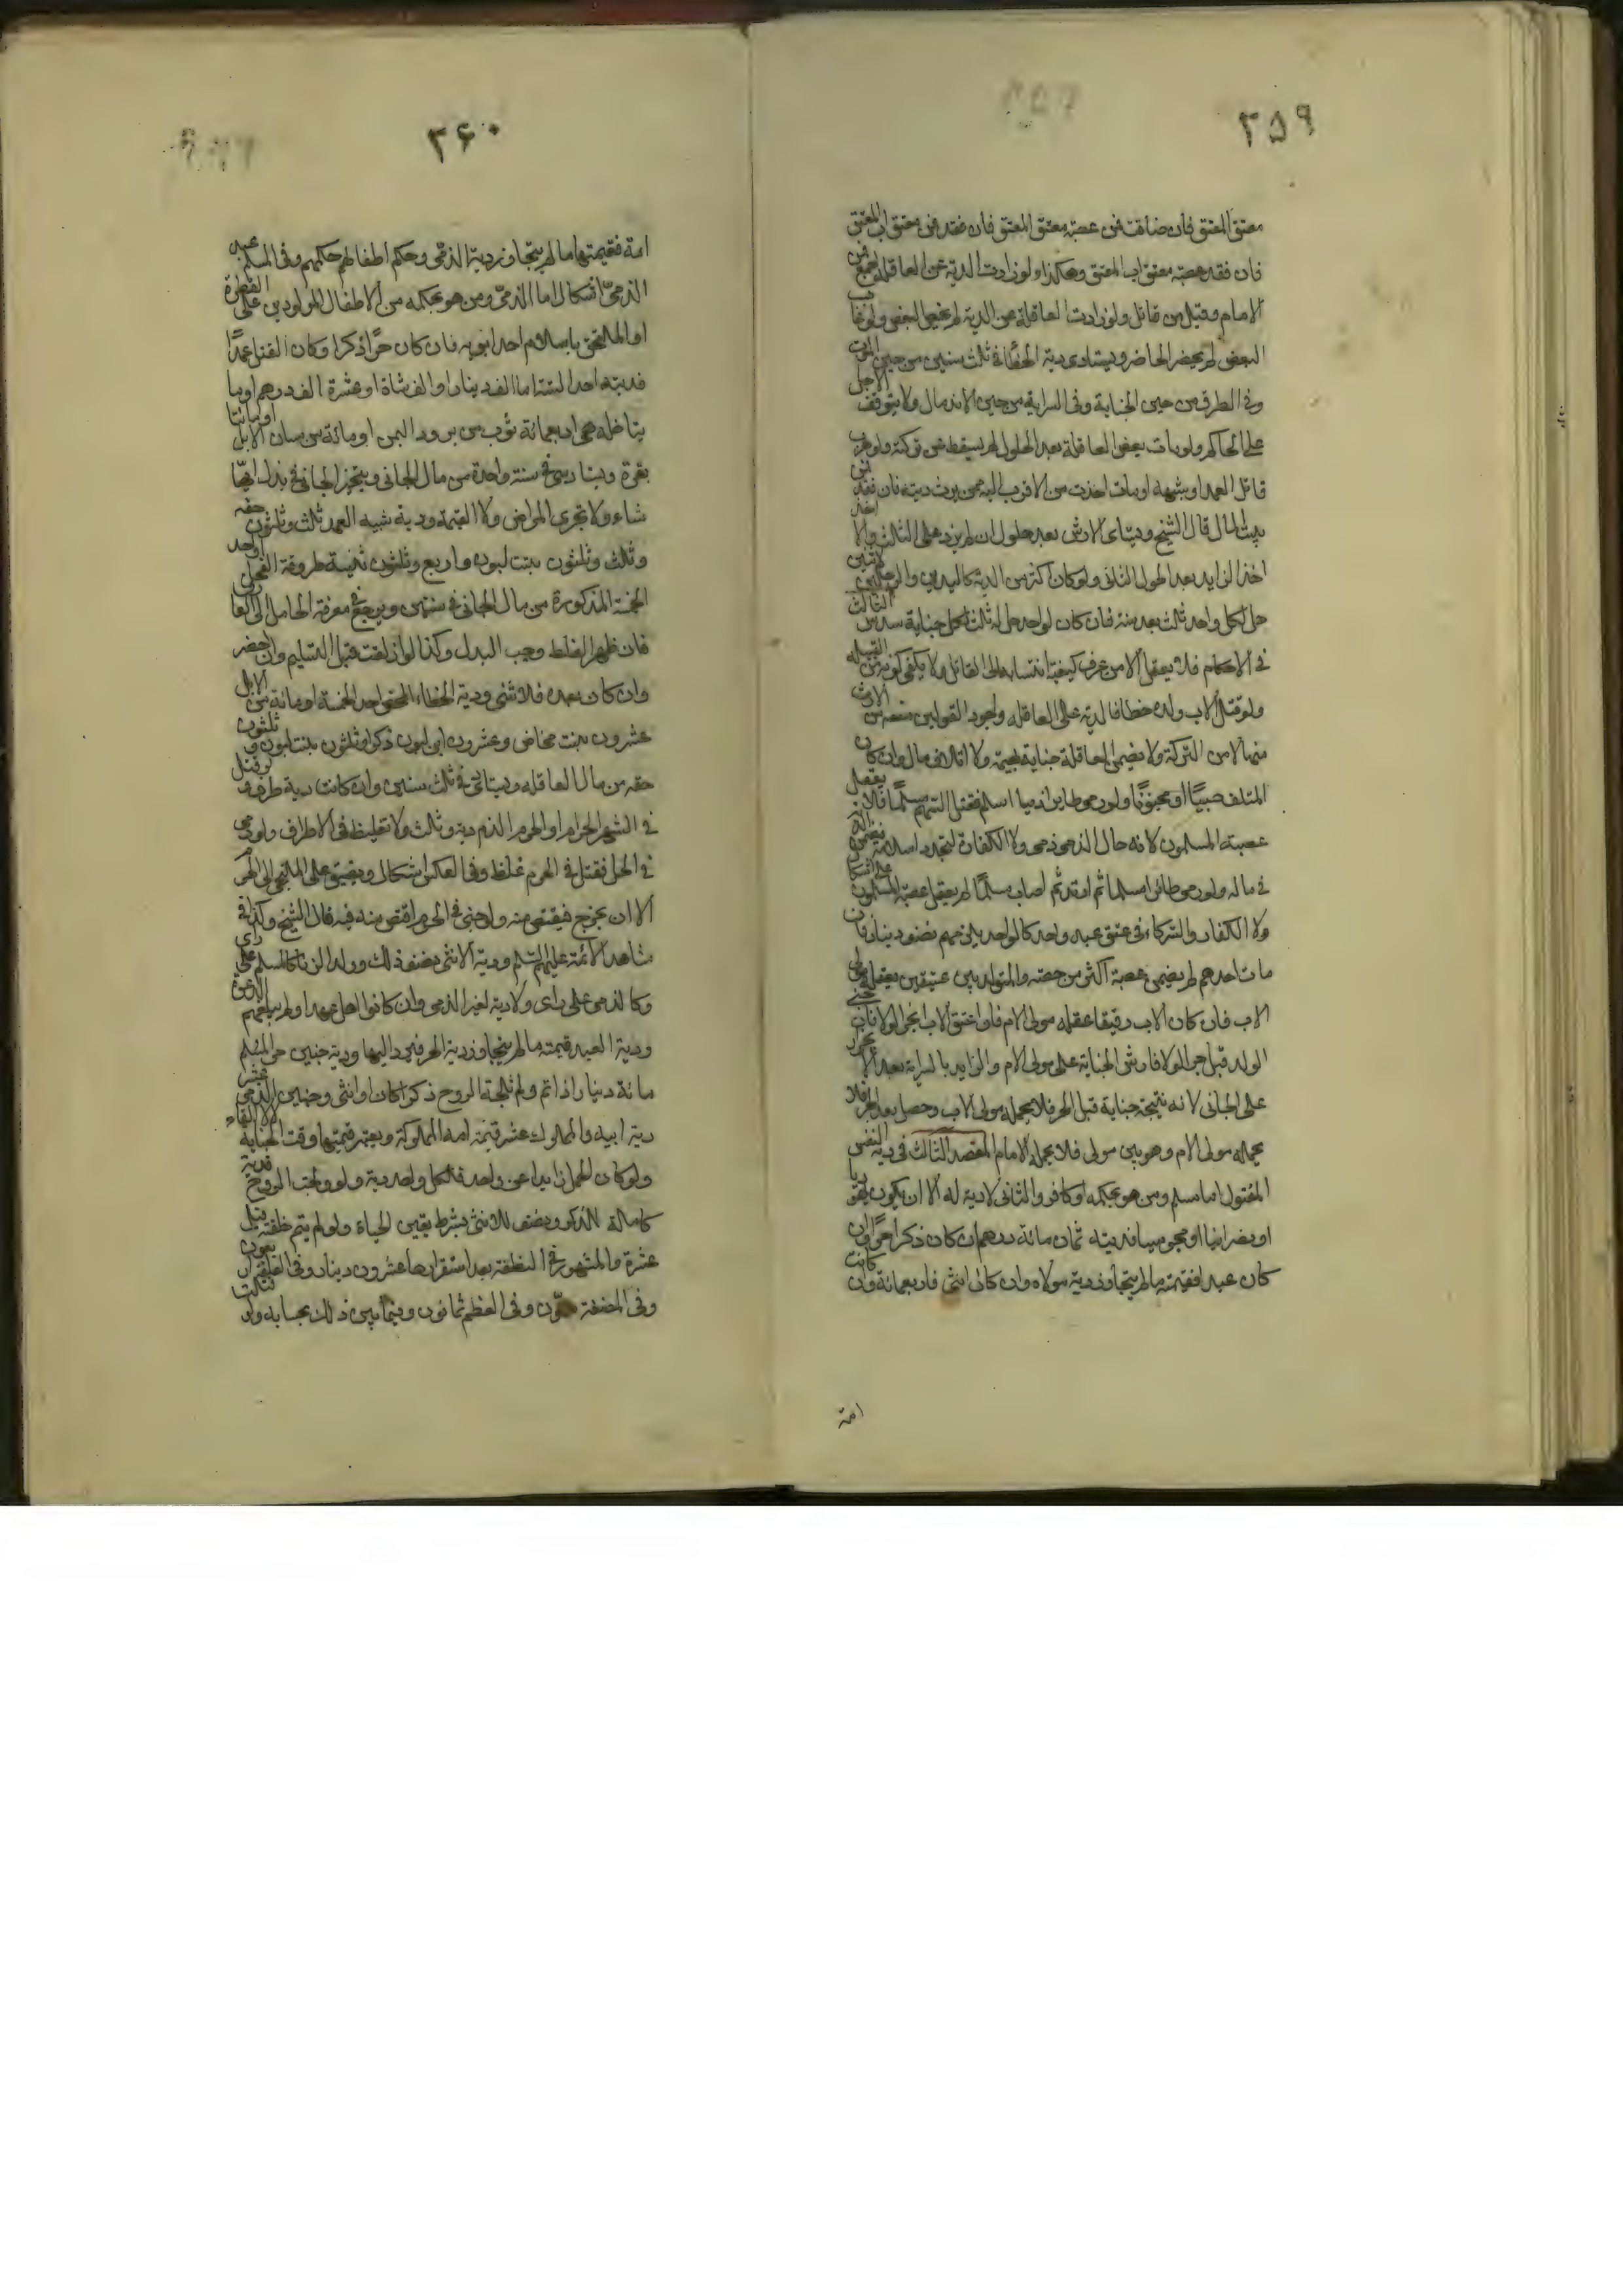 ٣٥٩
معتق المعتق فان ضاقت فمن عصبة معتق المعتق فان فقد فمن معتق اب المعتق
فان فقد عصبة معتق اب المعتق وهكذا ولو زادت الدية عن العاقلة اجمع فمن
الامام وقيل من قاتل ولو زادت العاقلة عن الدية لم يختص البعض ولو غاب
البعض لم يخص الحاضر ويستادى دية الخطأ في ثلث سنين من حين الموت
وفي الطرف من حين الجناية وفي السراية من حين الاندمال ولا يتوقف الاجل
على الحاكم ولو مات بعض العاقلة بعد الحلول لم يسقط من تركته ولو هرب
قاتل العمد او شبهه او مات اخذت من الاقرب اليه ممن يرث ديته فان فقد فمن
بيت المال قال الشيخ ويستادى الارش بعد حلول ان لم يزد على الثلث والا اخذ
اخذ الزايد بعد الحول الثاني ولو كان اكثر من الدية كاليدين والرجلين لاثنين
حل لكل واحد ثلث بعد سنة فان كان لواحد حل له ثلث لكل جناية سدس الثالث
في الاحكام فلا يعقل الا من عرف كيفية انتسابه الى القاتل ولا يكفي كونه من القبيلة
ولو قتل الاب ولده خطأ فالدية على العاقلة واجود القولين منعه من الارث
منها لا من التركة ولا يضمن العاقلة جناية بهيمة ولا اتلاف مال وان كان
المتلف صبيًا او مجنونًا ولو رمى طايرا ذميا اسلم فقتل السهم مسلمًا فلا يعقل
عصبته المسلمون لانه حال الرمي ذمي ولا الكفار لتجدد اسلامه فيضمن الدية
في ماله ولو رمى طائرا مسلما ثم ارتد ثم اصاب مسلمًا لم يعقل عصبته المسلمون على اشكال
ولا الكفار والشركاء في عتق عبد واحد كالواحد يلزمهم نصف دينار فان
مات احدهم لم يضمن عصبته اكثر من حصته والمتولد بين عتيقين يعقله مولى
الاب فان كان الاب رقيقا عقله مولى الام فان اعتق الاب انجر الولا فان جنى
الولد قبل جر الولا فارش الجناية على مولى الام والزايد بالسراية بعد الا تجر
على الجاني لانه نتيجة جناية قبل الجر فلا يحمله مولى الاب وحصل بعد الجر فلا
يحمله مولى الام وهو بين مولى فلا يحمله الامام المقصد الثالث في دية النفس
المقتول اما مسلم ومن هو بحكمه او كافر والثاني لا دية له الا ان يكون يهوديا
او نصرانيا او مجوسيا فديته ثمان مائة درهم ان كان ذكرا حرًا وان
كان عبدا فقيمته ما لم يتجاوز دية مولاه وان كان انثى فاربعمائة وان كانت
امة
٣۶٠
امة فقيمتها ما لم يتجاوز دية الذمي وحكم اطفالهم حكمهم وفي المسلم عبد
الذمي اشكال اما الذمي ومن هو بحكمه من الاطفال المولودين على الفطرة
او الملتحق باسلام احد ابويه فان كان حرًا ذكرا وكان القتل عمدًا
فديته احد الستة اما الف دينار او الف شاة او عشرة الف درهم او ما
يتا حلة هي اربعمائة ثوب من برود اليمن او مائة من مسان الابل او مائتا
بقرة ويستادي في سنة واحدة من مال الجاني ويتخير الجاني في بذل ايها
شاء ولا تجزي المراض ولا القيمة ودية شبيه العمد ثلث وثلثون حقه
وثلث وثلثون بنت لبون واربع وثلثون ثنية طروقة الفحل او احد
الخمسة المذكورة من مال الجاني في سنتين ويرجع في معرفة الحامل الى العا
فان ظهر الغلط وجب البدل وكذا لو ازلقت قبل التسليم وان احضر
وان كان بعده فلا شئ ودية الخطاء المحض احد الخمسة او مائة من الابل
عشرون بنت مخاض وعشرون ابن لبون ذكر وثلثون بنت لبون و ثلثون
حقه من مال العاقلة ويستأتي في ثلث سنين وان كانت دية طرف ولو قتل
في الشهر الحرام او الحرم الزم دية وثلث ولا تغليظ في الاطراف ولو رمى
في الحل فقتل في الحرم غلظ وفي العكس اشكال ويضيق على الملتجي الى الحرم
الا ان يخرج فيقتص منه ولو جنى في الحرم اقتص منه فيه قال الشيخ وكذا في
مشاهد الائمة عليهم السلم ودية الانثى نصف ذلك وولد الزنا كالمسلم على راي
وكالذمي على راي ولا دية لغير الذمي وان كانوا اهل عهد او لم يبلغهم الدعوة
ودية العبد قيمته ما لم يتجاوز دية الحر فيرد اليها ودية جنين حر المسلم
مائة دينار اذا تم ولم تلجه الروح ذكرا كان او انثى وجنين الذمي عشر
دية ابيه والمملوك عشر قيمة امه المملوكة ويعتبر قيمتها وقت الجناية لا الالقاء
ولو كان الحمل زايدا عن واحد فلكل واحد دية ولو ولجت الروح فدية
كاملة للذكر ونصف للانثى بشرط يقين الحياة ولو لم يتم خلقته قيل
عشرة والمشهور في النطفة بعد استقرارها عشرون دينار وفي العلقة اربعون
وفي المضغة ستون وفي العظم ثمانون وفيما بين ذلك بحسابه ولو